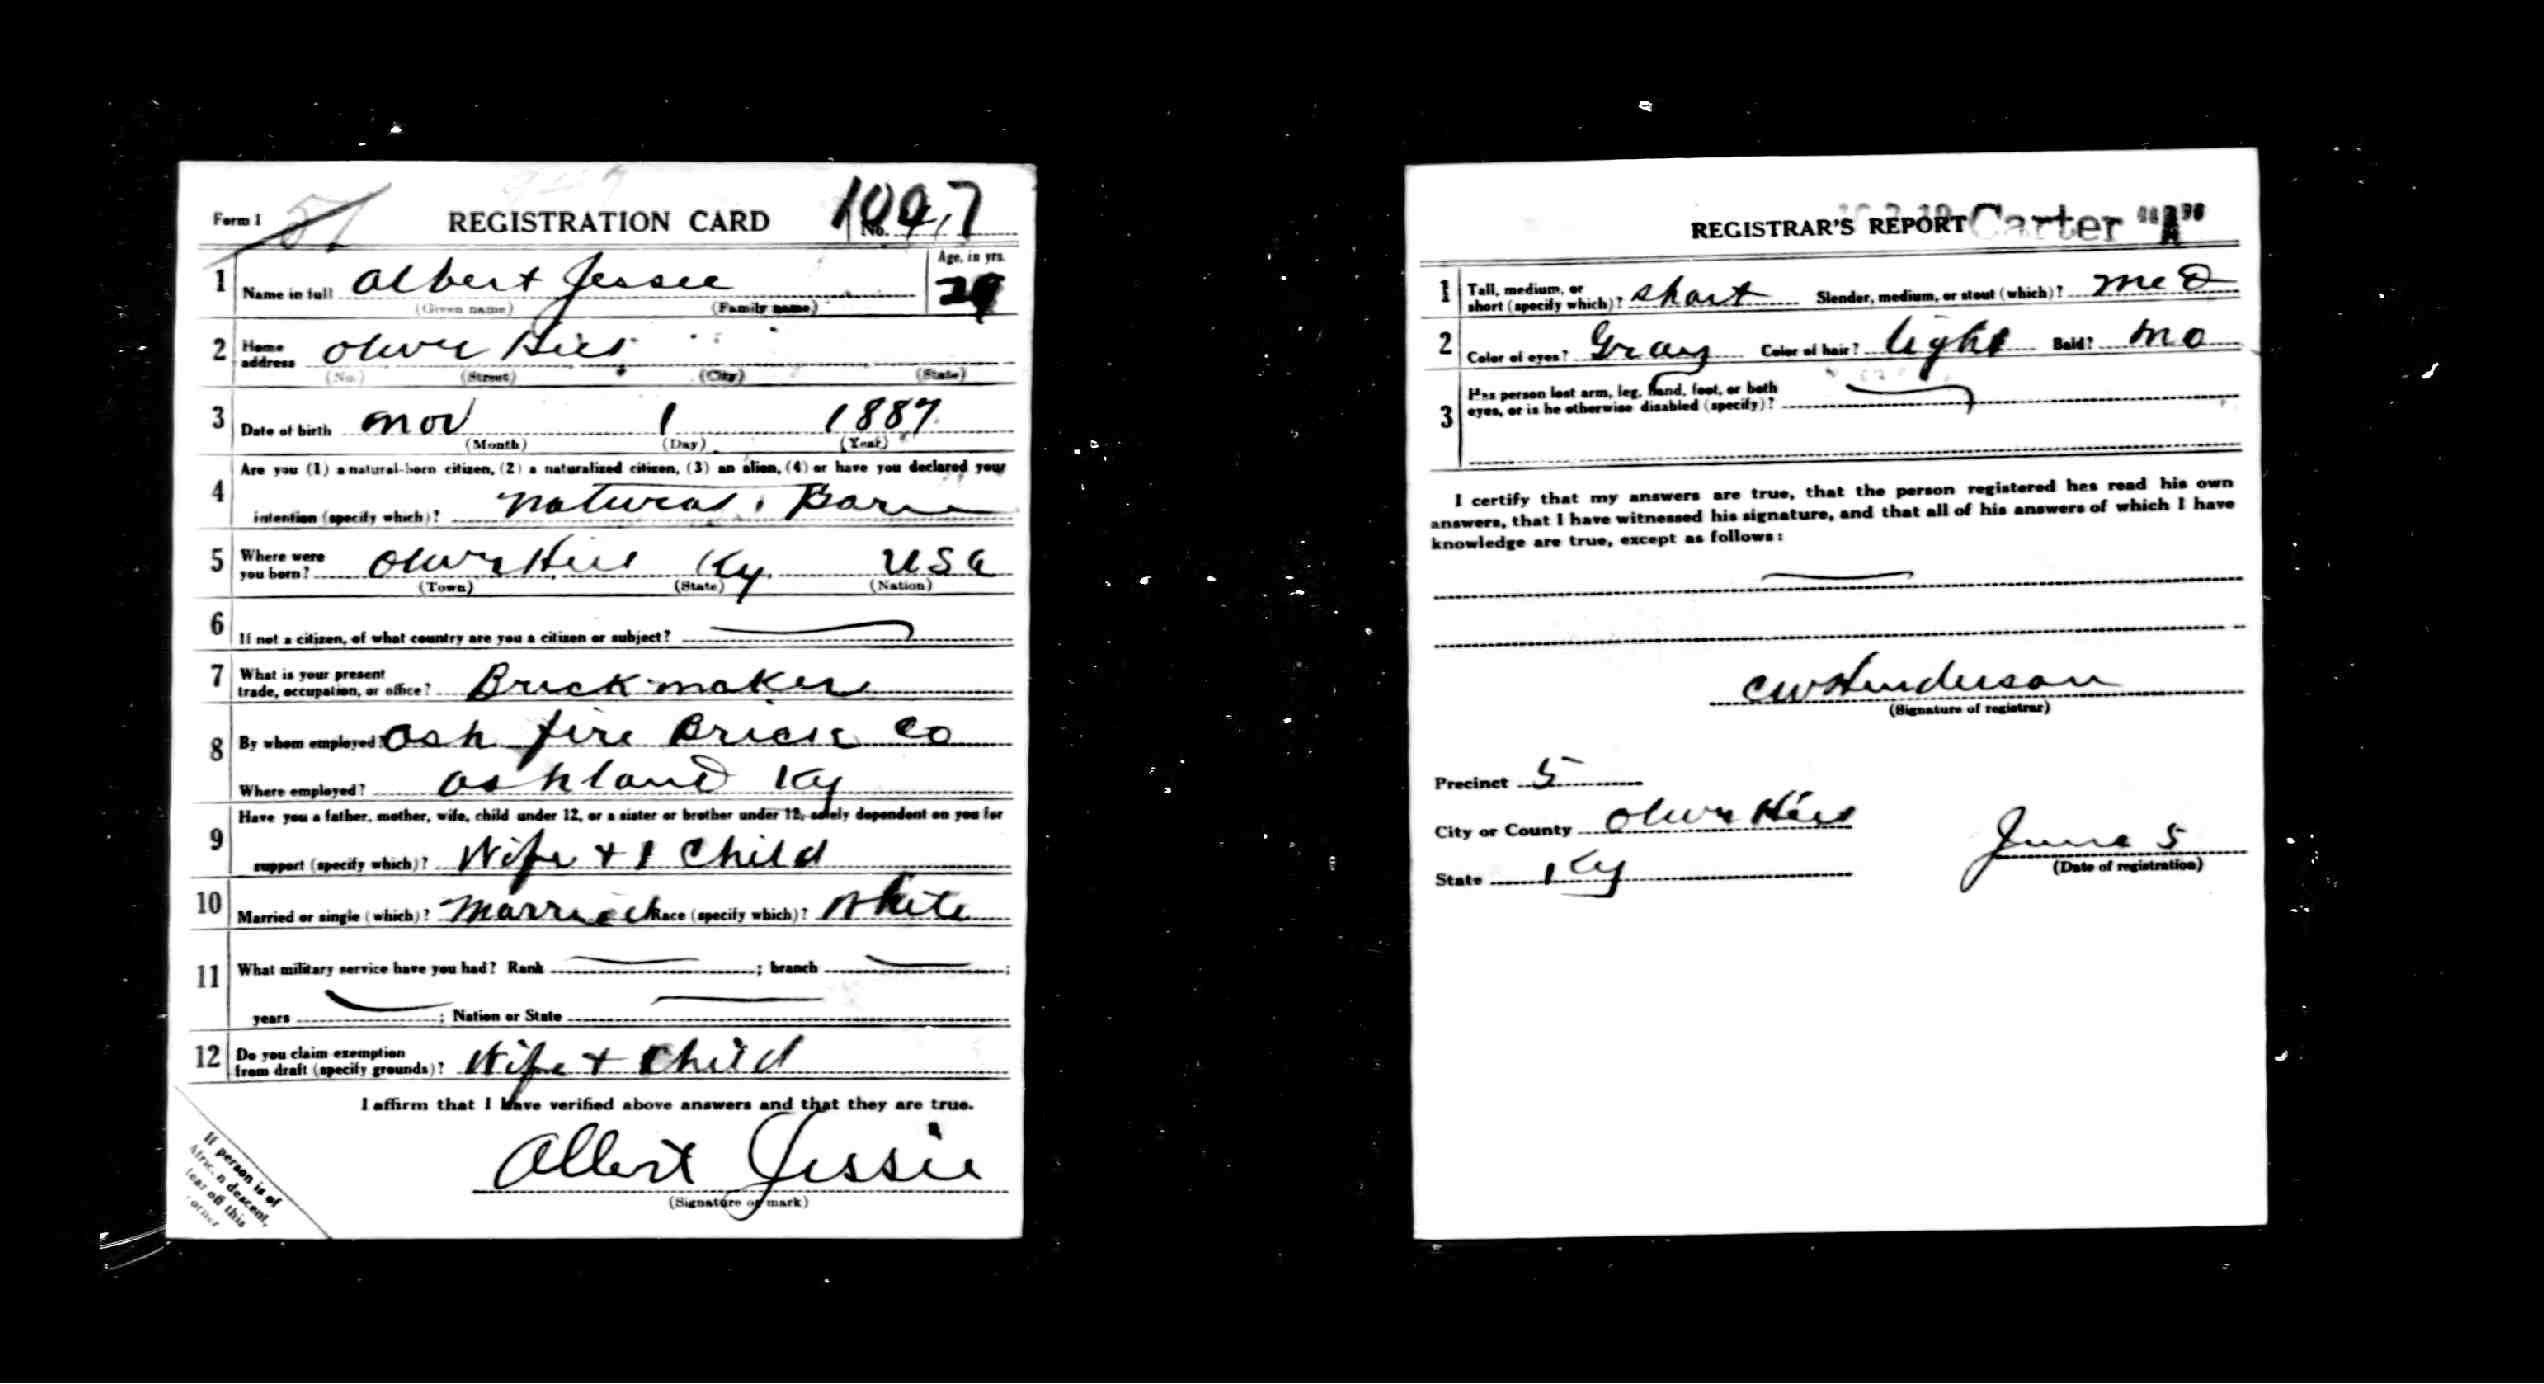 Form 1 57 REGISTRATION CARD No. 1047
1 Name in full Albert Jessee Age, in yrs. 29
(Given name) (Family name)
2 Home address Olive Hill
(No.) (Street) (City) (State)
3 Date of birth Nov 1 1887
(Month) (Day) (Year)
4 Are you (1) a natural-born citizen, (2) a naturalized citizen, (3) an alien, (4) or have you declared your
intention (specify which)? Natural Born
5 Where were you born? Olive Hill Ky USA
(Town) (State) (Nation)
6 If not a citizen, of what country are you a citizen or subject?
7 What is your present trade, occupation, or office? Brick maker
8 By whom employed? Ash fire Brick Co
Where employed? Ashland Ky
9 Have you a father, mother, wife, child under 12, or a sister or brother under 12, solely dependent on you for
support (specify which)? Wife + 1 Child
10 Married or single (which)? Married Race (specify which)? White
11 What military service have you had? Rank ; branch ;
years ; Nation or State
12 Do you claim exemption from draft (specify grounds)? Wife + Child
I affirm that I have verified above answers and that they are true.
Albert Jessie
(Signature or mark)
If person is of
African descent,
tear off this
corner
REGISTRAR'S REPORT Carter "A"
1 Tall, medium, or short (specify which)? short Slender, medium, or stout (which)? Med
2 Color of eyes? Gray Color of hair? light Bald? No
3 Has person lost arm, leg, hand, foot, or both
eyes, or is he otherwise disabled (specify)?
I certify that my answers are true, that the person registered has read his own
answers, that I have witnessed his signature, and that all of his answers of which I have
knowledge are true, except as follows:
CW Henderson
(Signature of registrar)
Precinct 5
City or County Olive Hill
State Ky
June 5
(Date of registration)